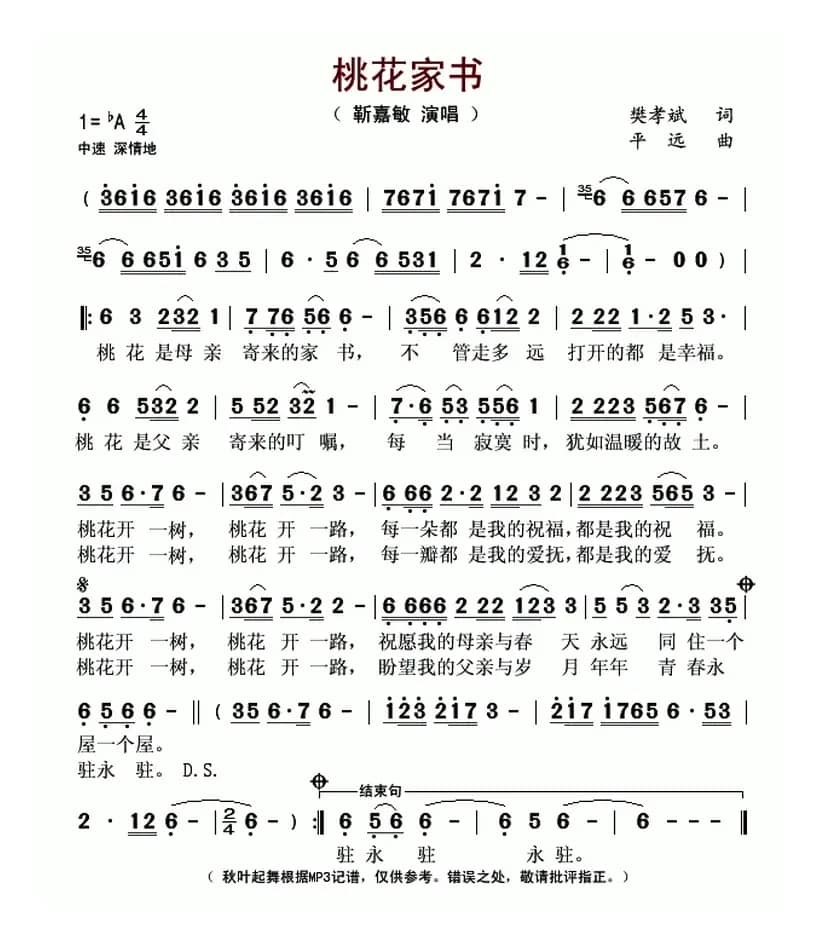 桃花家书
( 靳嘉敏 演唱 )
1= ♭A 4/4
樊孝斌 词
中速 深情地
平 远 曲
( 3616 3616 3616 3616 | 7671 7671 7 - | 35 6 6 657 6 - |
35 6 6 651 6 3 5 | 6 · 5 6 6 531 | 2 · 12 1/6 - | 1/6 - 0 0 ) |
‖: 6 3 232 1 | 7 76 56 6 - | 356 6 612 2 | 2 22 1·2 5 3· |
桃 花 是母 亲 寄来的家 书, 不 管走多 远 打开的都 是幸福。
6 6 532 2 | 5 52 32 1 - | 7·6 53 556 1 | 2 223 567 6 - |
桃 花 是父 亲 寄来的叮 嘱, 每 当 寂寞 时, 犹如温暖的故 土。
3 5 6·7 6 - | 367 5·2 3 - | 6 66 2·2 12 32 | 2 223 565 3 - |
桃花开 一树, 桃花 开 一路, 每一朵都 是我的祝福,都是我的祝 福。
桃花开 一树, 桃花 开 一路, 每一瓣都 是我的爱抚,都是我的爱 抚。
3 5 6·7 6 - | 367 5·2 3 - | 6 666 2 22 123 3 | 5 5 3 2·3 35 |
桃花开 一树, 桃花 开 一路, 祝愿我的母亲与春 天 永远 同 住一个
桃花开 一树, 桃花 开 一路, 盼望我的父亲与岁 月 年年 青 春永
6 5 6 6 - ‖ ( 35 6·7 6 - | 123 217 3 - | 217 1765 6· 53 |
屋一个屋。
驻永 驻。 D.S.
结束句
2 · 12 6 - | 2/4 6 - ) :‖ 6 5 6 6 - | 6 5 6 - | 6 - - - ‖
驻 永 驻 永 驻。
( 秋叶起舞根据MP3记谱，仅供参考。错误之处，敬请批评指正。)